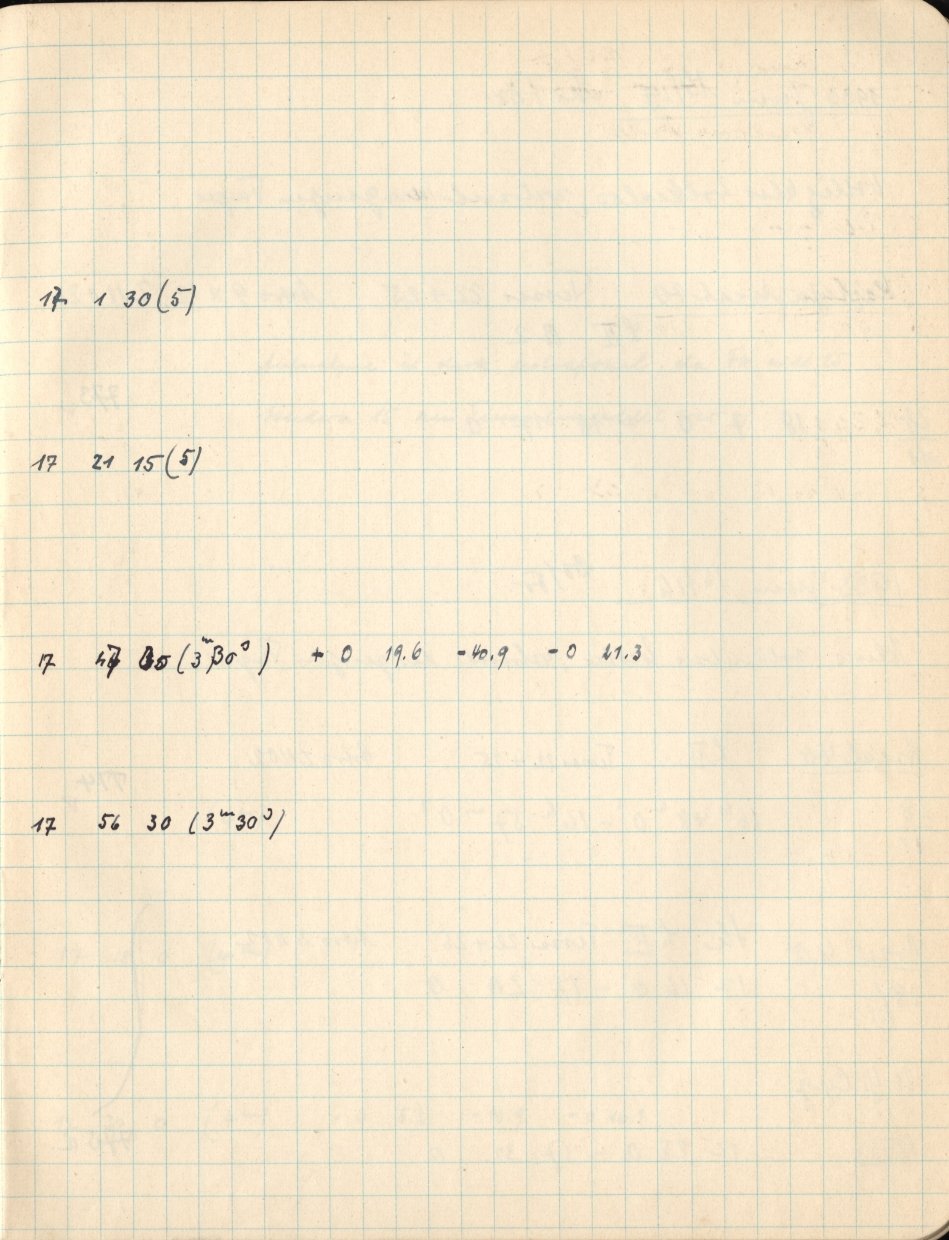 17 1 30 (5)
17 21 15 (5)
17 (3ᵐ30ˢ) + 0 19.6 -40.9 - 0 21.3
17 56 30 (3ᵐ30ˢ)